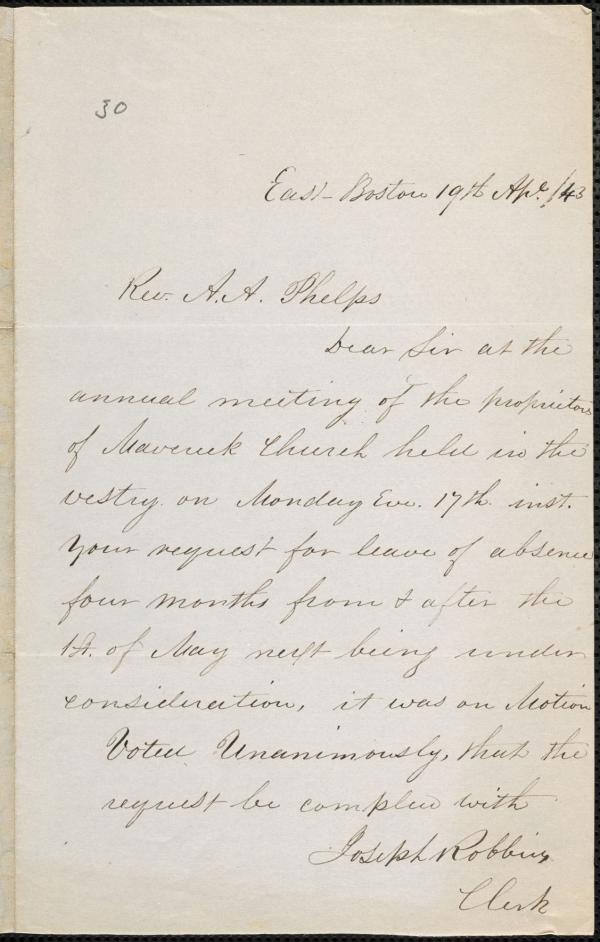 30
East-Boston 19th Apl. /43
Rev. A. A. Phelps
Dear Sir at the
annual meeting of the proprietors
of Maverick Church held in the
vestry on Monday Eve. 17th inst.
your request for leave of absence
four months from & after the
1st. of May next being under
consideration, it was on Motion
Voted Unanimously, that the
request be complied with
Joseph Robbins
Clerk